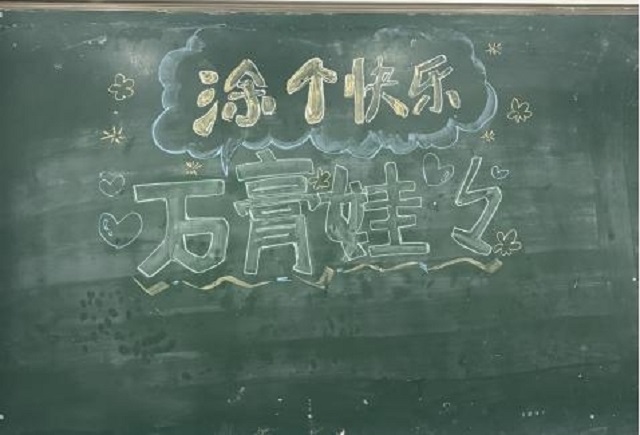 涂个快乐
石膏娃々